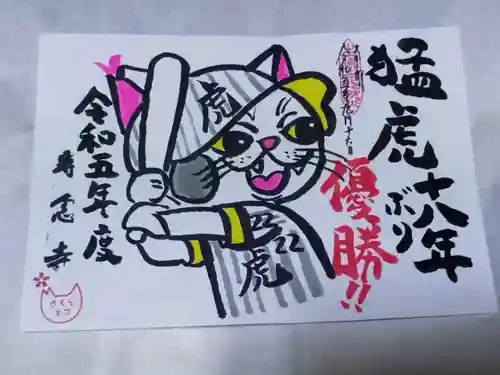 猛虎十八年
ぶり
優勝!!
虎
22
虎
令和五年度
専念寺
さくら
ねこ